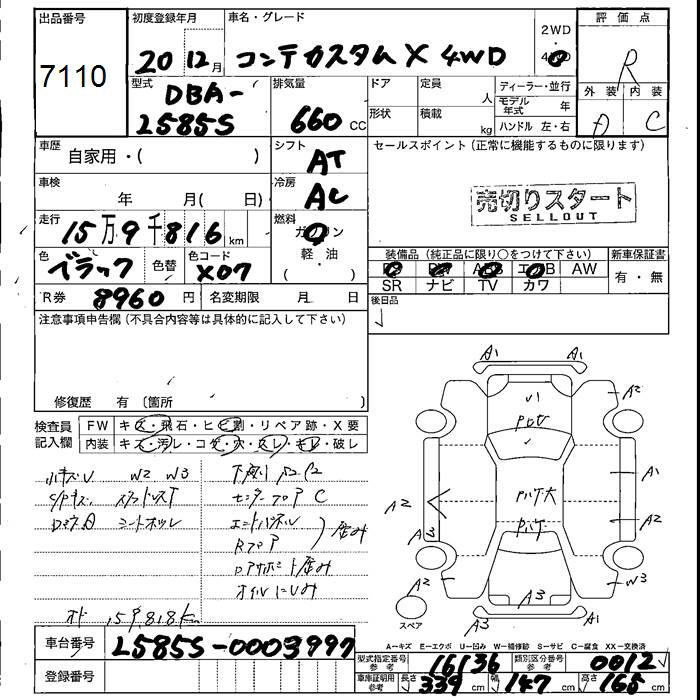 出品番号 初度登録年月 車名・グレード 評価点
7110 20 12月 コンテカスタム X 4WD 2WD 4WD R
型式 排気量 ドア 定員 ディーラー・並行 外装 内装
DBA-L585S 660 CC 人 モデル年式 年 D C
形状 積載 kg ハンドル 左・右
車歴 自家用・( ) シフト AT セールスポイント (正常に機能するものに限ります)
車検 年 月( 日) 冷房 AC
売切りスタート
SELLOUT
走行 15万9千816km 燃料 ガソリン 軽・油
色 ブラック 色替 色コード X07 装備品 (純正品に限り○をつけて下さい) 新車保証書
AW 有・無
SR ナビ TV カワ
R券 8960円 名変期限 月 日 後日品
注意事項申告欄 (不具合内容等は具体的に記入して下さい)
修復歴 有 (箇所 )
検査員記入欄 FW キズ・飛石・ヒビ割・リペア跡・X要
内装 キズ・汚レ・コゲ・穴・スレ・キレ・破レ
小キズU W2 W3
センターフロア C
Rフロア
オド 159,818km
A1 A1
A2
A1
A2 A2
A3
A2 W3
A3
A3 A1
スペア
A-キズ E-エクボ U-凹み W-補修跡 S-サビ C-腐食 XX-交換済
車台番号 L585S-0003997
型式指定番号 参考 16136 類別区分番号 参考 0012
登録番号 車庫証明用 参考 長さ 339cm 幅 147cm 高さ 165cm